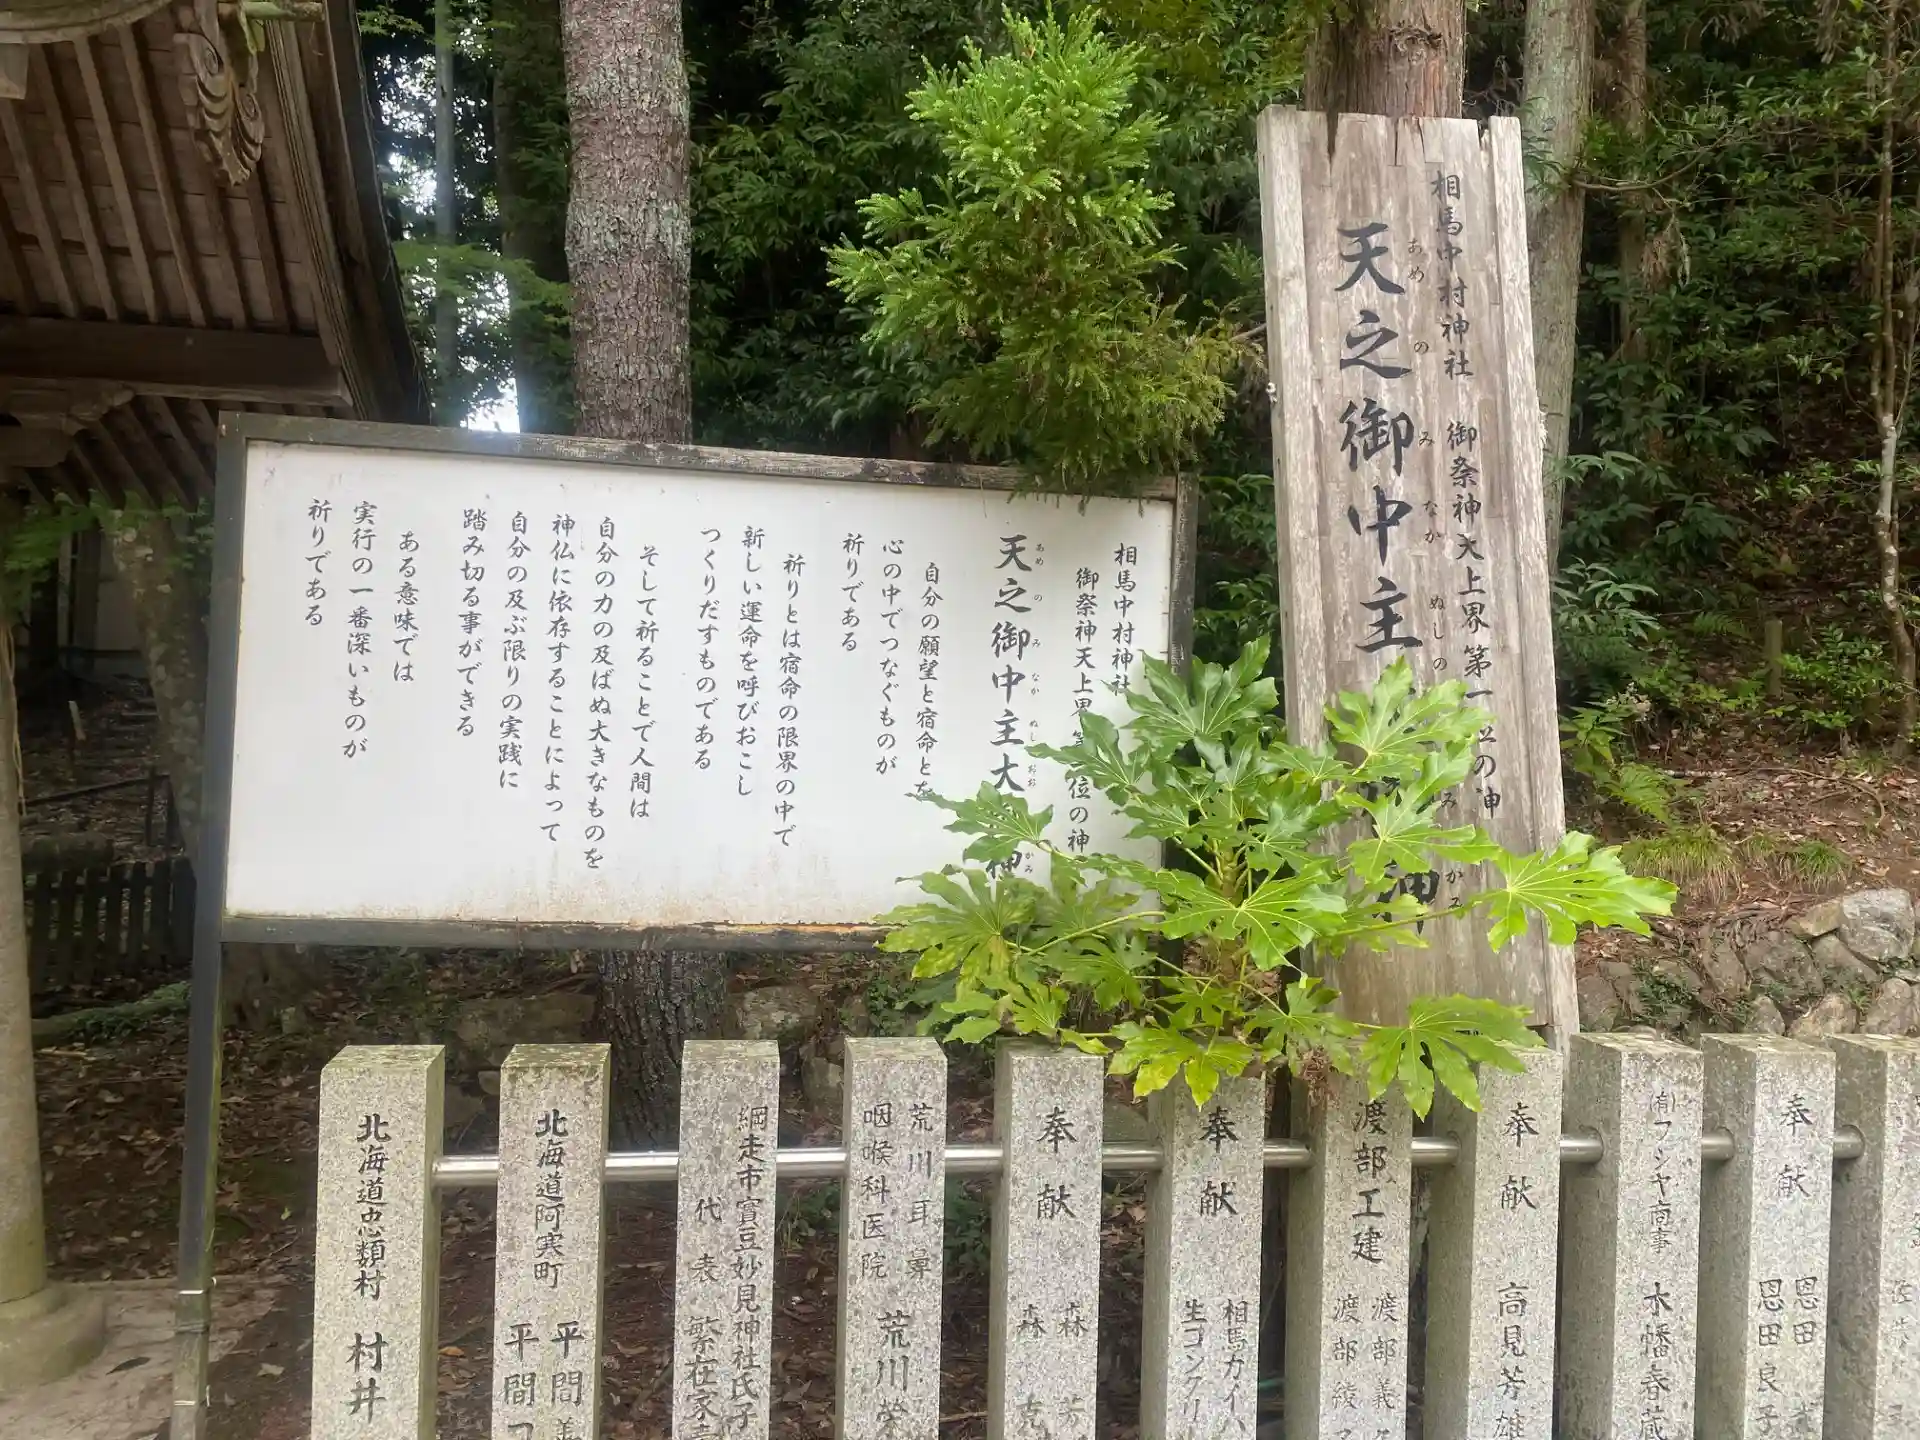 相馬中村神社 御祭神天上界第一位の神
あめ の み なか ぬし の かみ
天之御中主 神
相馬中村神社
御祭神天上界第一位の神
あめ の み なか ぬし おお かみ
天之御中主大 神
自分の願望と宿命とを
心の中でつなぐものが
祈りである
祈りとは宿命の限界の中で
新しい運命を呼びおこし
つくりだすものである
そして祈ることで人間は
自分の力の及ばぬ大きなものを
神仏に依存することによって
自分の及ぶ限りの実践に
踏み切る事ができる
ある意味では
実行の一番深いものが
祈りである
北海道忠類村 村井
北海道阿寒町 平間
平間
網走市實豆妙見神社氏子
代表 繁在家
荒川耳鼻
咽喉科医院 荒川栄
奉献 森 芳
森 克
奉献 相馬ガイハ
生コンクリ
渡部工建 渡部義
渡部綾
奉献 高見芳雄
㈲フシヤ商事 木幡春蔵
奉献 恩田
恩田良子